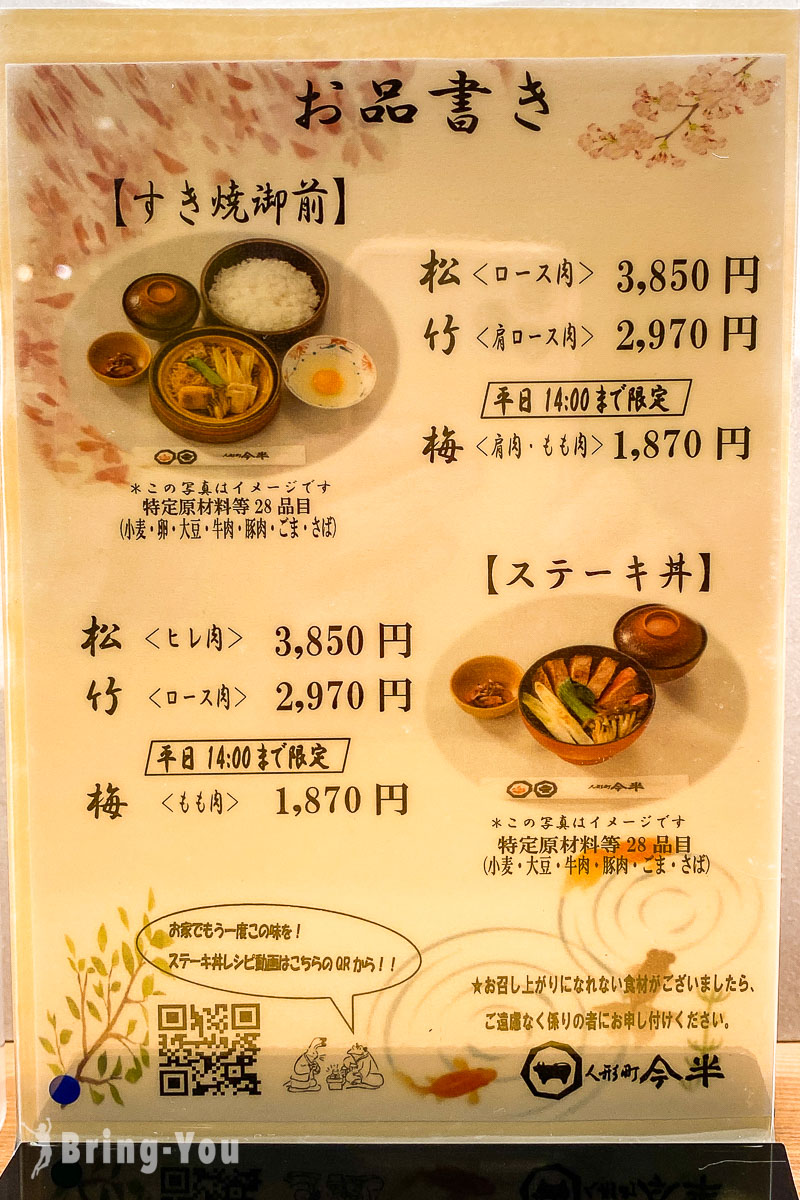 お品書き
【すき焼御前】
松 <ロース肉> 3,850 円
竹 <肩ロース肉> 2,970 円
平日 14:00まで限定
梅 <肩肉・もも肉> 1,870 円
人形町 今半
*この写真はイメージです
特定原材料等 28 品目
(小麦・卵・大豆・牛肉・豚肉・ごま・さば)
【ステーキ丼】
松 <ヒレ肉> 3,850 円
竹 <ロース肉> 2,970 円
平日 14:00まで限定
梅 <もも肉> 1,870 円
人形町 今半
*この写真はイメージです
特定原材料等 28 品目
(小麦・大豆・牛肉・豚肉・ごま・さば)
お家でもう一度この味を!
ステーキ丼レシピ動画はこちらの QR から!!
★お召し上がりになれない食材がございましたら、
ご遠慮なく係りの者にお申し付けください。
人形町 今半
Bring-You